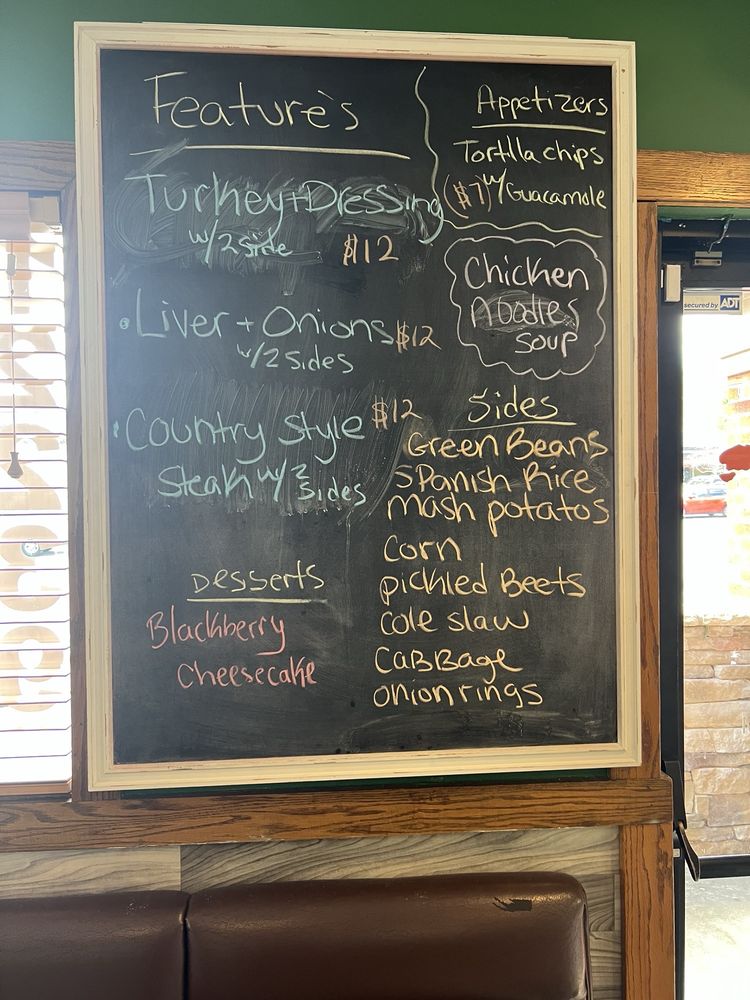 Feature's
Turkey+Dressing
w/2 side $12
• Liver + Onions $12
w/2 sides
• Country Style $12
Steak w/ 2 sides
Desserts
Blackberry
Cheesecake
Appetizers
Tortilla chips
($7) w/ Guacamole
Chicken
Noodles
Soup
Sides
Green Beans
Spanish Rice
Mash potatos
Corn
pickled Beets
Cole slaw
CaBBage
onion rings
secured by ADT